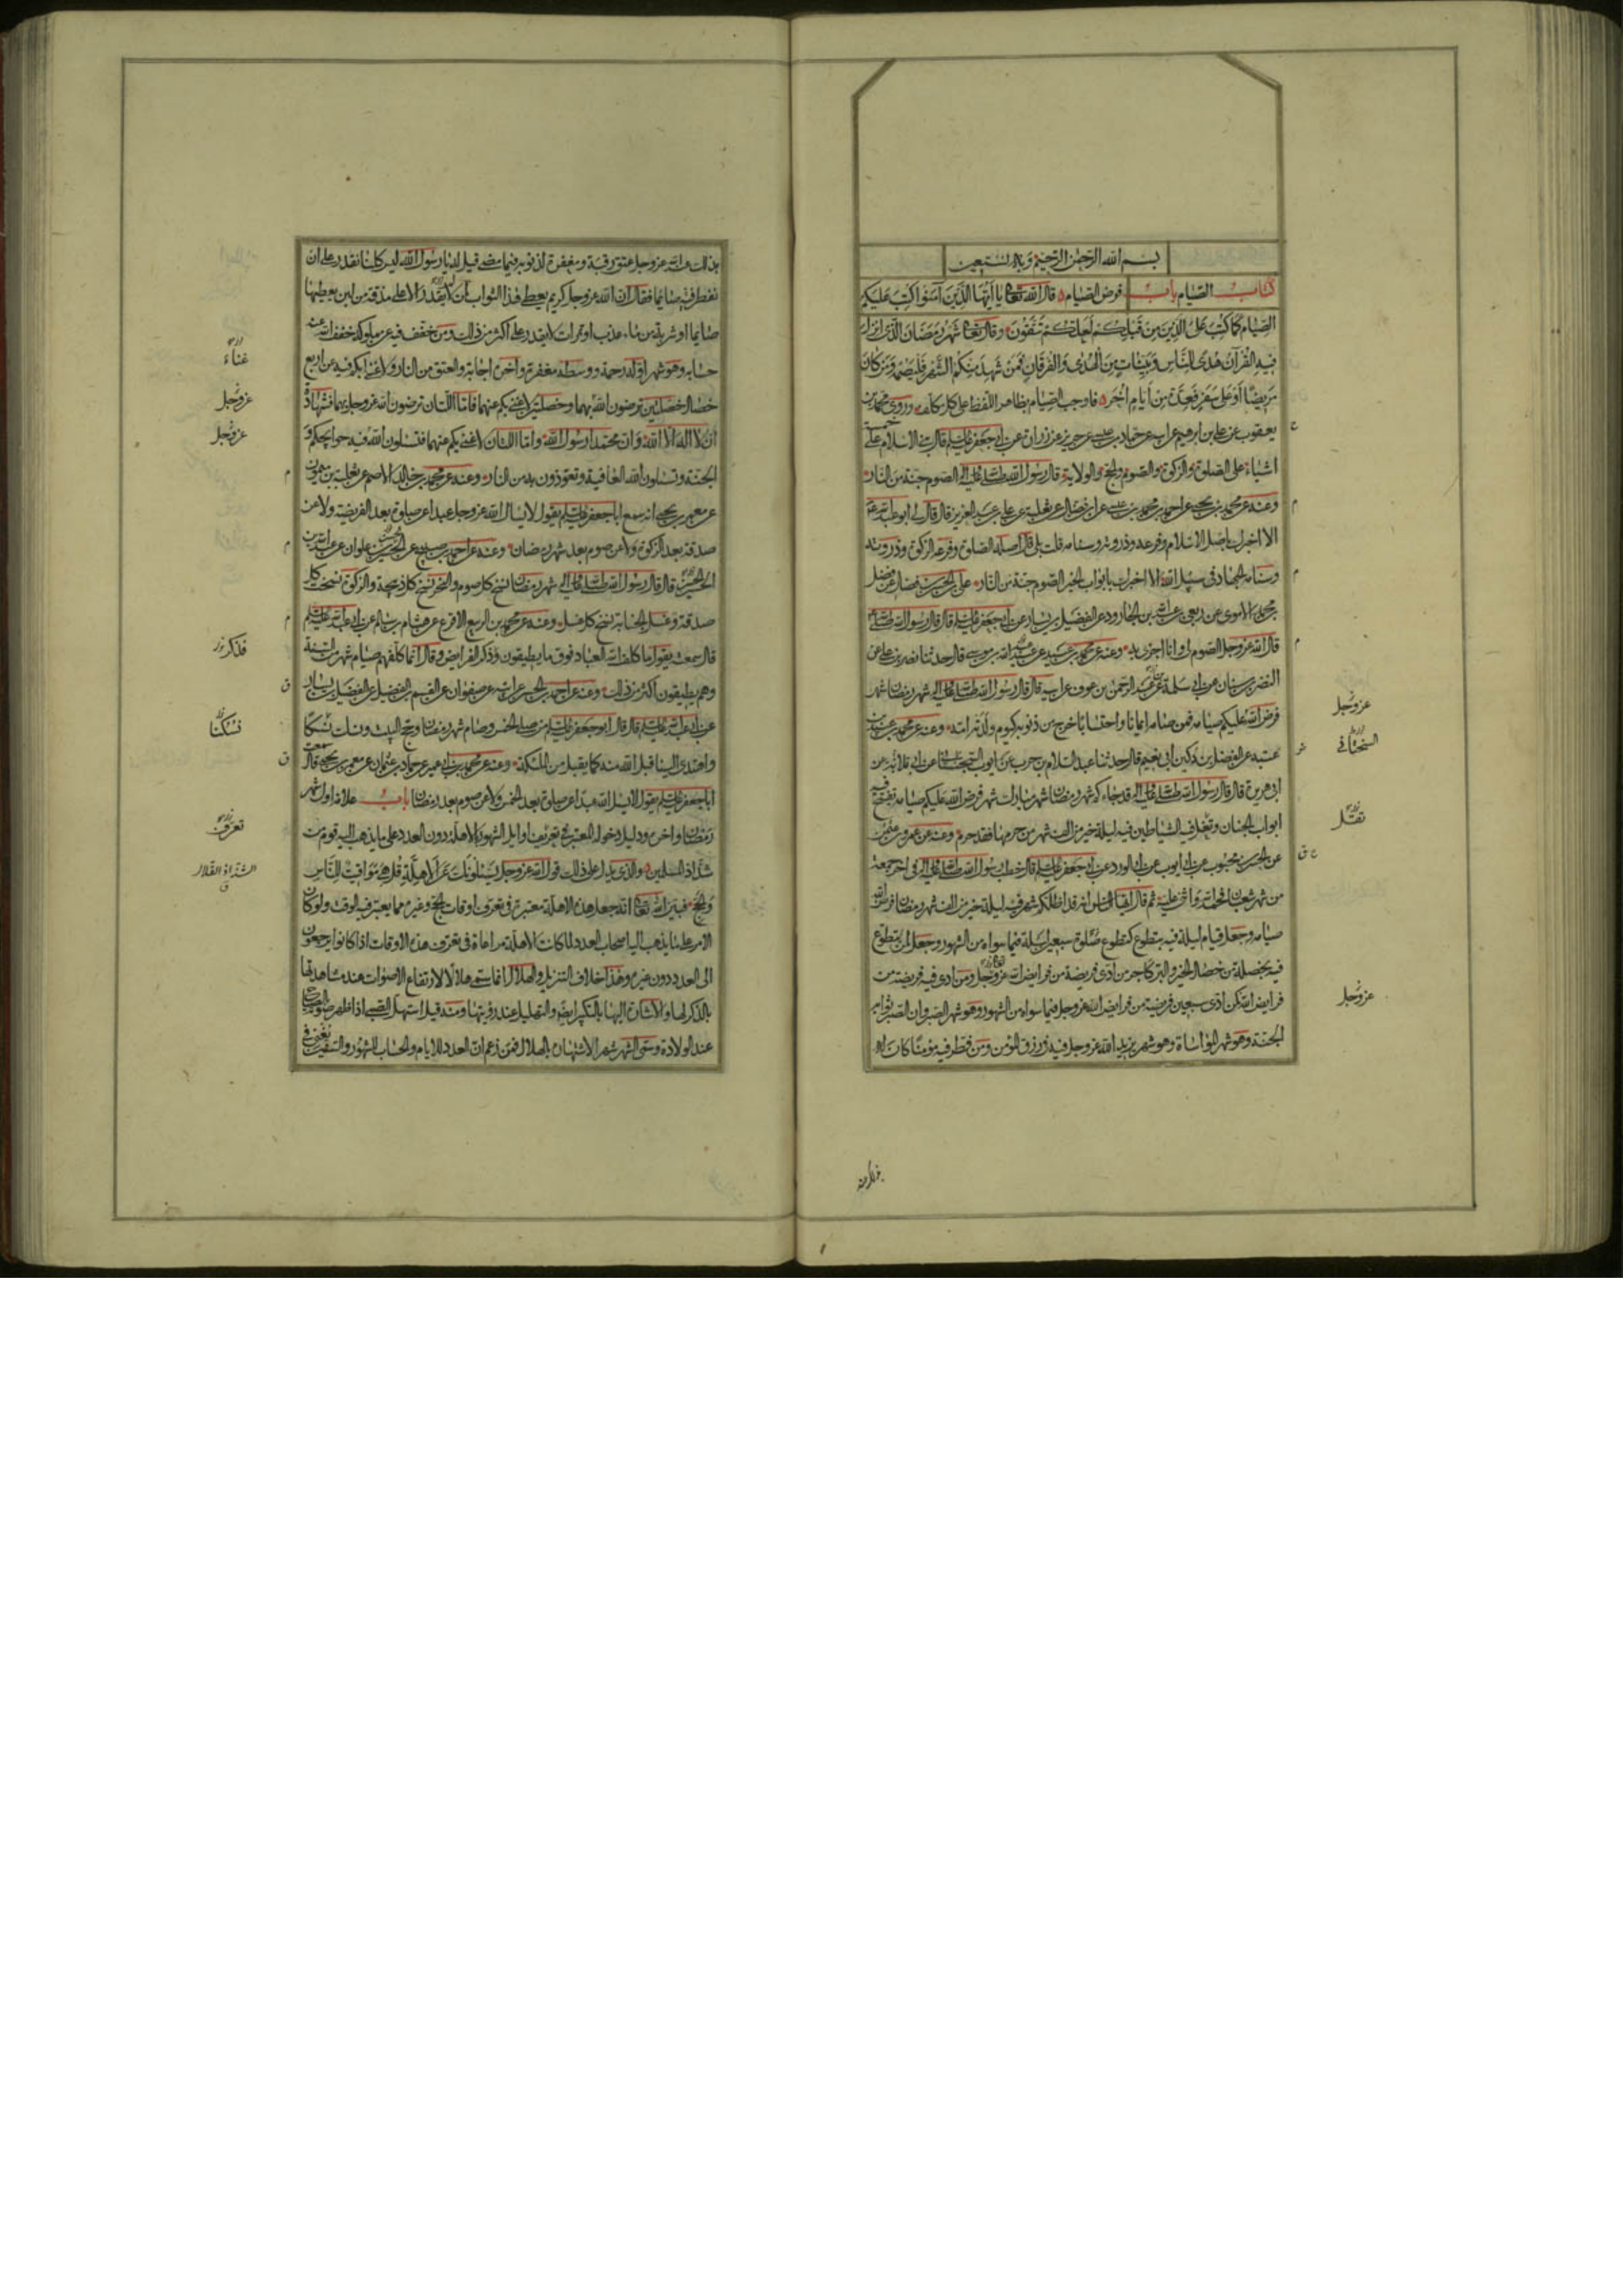 بسم الله الرحمن الرحيم وبه نستعين
كتاب الصيام باب فرض الصيام قال الله تعالى يا أيها الذين آمنوا كتب عليكم
الصيام كما كتب على الذين من قبلكم لعلكم تتقون وقال تعالى شهر رمضان الذي انزل
فيه القرآن هدى للناس وبينات من الهدى والفرقان فمن شهد منكم الشهر فليصمه ومن كان
مريضا أو على سفر فعدة من أيام أخر فاوجب الصيام بظاهر اللفظ على كل مكلف وروى محمد بن
يعقوب عن علي بن ابرهيم عن ابيه عن حماد بن عيسى عن حريز عن زرارة عن ابي جعفر عليه السلام قال بني الاسلام على خمسة
اشياء على الصلوة والزكوة والصوم والحج والولاية وقال رسول الله صلى الله عليه واله الصوم جنة من النار
وعنه عن محمد بن يحيى عن احمد بن محمد بن عيسى عن ابن فضال عن ثعلبة عن علي بن عبد العزيز قال قال لي ابو عبد الله ع
الا اخبرك باصل الاسلام وفرعه وذروته وسنامه قلت بلى قال اصله الصلوة وفرعه الزكوة وذروته
وسنامه الجهاد في سبيل الله الا اخبرك بابواب الخير الصوم جنة من النار علي بن الحسن بن فضال عن فضل
بن محمد الاموي عن ربعي بن عبد الله بن الجارود عن الفضيل بن يسار عن ابي جعفر عليه السلام قال قال رسول الله صلى الله عليه
قال الله عز وجل الصوم لي وانا اجزي به وعنه عن محمد بن عبيد عن عبيد الله بن موسى قال حدثنا نصر بن علي عن
النضر بن سنان عن ابي سلمة بن عبد الرحمن بن عوف عن ابيه قال قال رسول الله صلى الله عليه واله شهر رمضان شهر
فرض الله عليكم صيامه فمن صامه ايمانا واحتسابا خرج من ذنوبه كيوم ولدته امه وعنه عن محمد بن عبيد بن
عتبة عن الفضل بن دكين ابي نعيم قال حدثنا عبد السلام بن حرب عن ايوب السجستاني عن ابي قلابة عن
ابي هريرة قال قال رسول الله صلى الله عليه واله قد جاءكم شهر رمضان شهر مبارك شهر فرض الله عليكم صيامه تفتح فيه
ابواب الجنان وتغل فيه الشياطين فيه ليلة خير من الف شهر من حرمها فقد حرم وعنه عن عمرو بن عثمن
عن الحسن بن محبوب عن ابي ايوب عن ابي الورد عن ابي جعفر عليه السلام قال خطب رسول الله صلى الله عليه واله في اخر جمعة
من شهر شعبان فحمد الله واثنى عليه ثم قال ايها الناس انه قد اظلكم شهر فيه ليلة خير من الف شهر وهو شهر رمضان فرض الله
صيامه وجعل قيام ليلة فيه بتطوع كتطوع صلوة سبعين ليلة فيما سواه من الشهور وجعل لمن تطوع
فيه بخصلة من خصال الخير والبر كاجر من ادى فريضة من فرايض الله عز وجل ومن ادى فيه فريضة من
فرايض الله كمن ادى سبعين فريضة من فرايض الله عز وجل فيما سواه من الشهور وهو شهر الصبر وان الصبر ثوابه
الجنة وهو شهر المواساة وهو شهر يزيد الله عز وجل فيه في رزق المؤمن ومن فطر فيه مؤمنا كان له
عز وجل
السختياني
تقبل
عز وجل
بذلك عند الله عز وجل عتق رقبة ومغفرة لذنوبه فيما مضى قيل له يا رسول الله ليس كلنا نقدر على ان
نفطر فيه صائما فقال ان الله عز وجل كريم يعطي هذا الثواب لمن لا يقدر الا على مذقة من لبن يعطيها
صايما او شربة من ماء عذب او تمرات لا يقدر على اكثر من ذلك ومن خفف فيه عن مملوكه خفف الله عنه
حسابه وهو شهر اوله رحمة ووسطه مغفرة واخره اجابة والعتق من النار ولا غنى بكم فيه عن اربع
خصال خصلتين ترضون الله بهما وخصلتين لا غنى بكم عنهما فاما اللتان ترضون الله عز وجل بهما فشهادة
ان لا اله الا الله وان محمدا رسول الله واما اللتان لا غنى بكم عنهما فتسئلون الله فيه حوايجكم و
الجنة وتسئلون الله العافية وتعوذون به من النار وعنه عن محمد بن خالد الاصم عن ثعلبة بن ميمون
عن معمر بن يحيى انه سمع ابا جعفر عليه السلام يقول لا يسال الله عز وجل عبدا عن صلوة بعد الفريضة ولا عن
صدقة بعد الزكوة ولا عن صوم بعد شهر رمضان وعنه عن احمد بن صبيح عن الحسين بن علوان عن عبد الله بن
الحسن قال قال رسول الله صلى الله عليه واله شهر رمضان نسخ كل صوم والنحر نسخ كل ذبيحة والزكوة نسخت كل
صدقة وغسل الجنابة نسخ كل غسل وعنه عن محمد بن الربيع الاقرع عن هشام بن سالم عن ابي عبد الله عليه السلام
قال سمعته يقول ما كلف الله العباد فوق ما يطيقون وذكر الفرايض وقال انما كلفهم صيام شهر من السنة
وهم يطيقون اكثر من ذلك وعنه عن احمد بن الحسن عن ابيه عن صفوان عن القسم بن الفضيل عن الفضيل بن يسار
عن ابي عبد الله عليه السلام قال قال ابو جعفر عليه السلام من صلى الخمس وصام شهر رمضان وحج البيت ونسك نسكا
واهتدى الينا قبل الله منه كما يقبل من الملئكة وعنه عن محمد بن ابي عمير عن حماد بن عثمان عن معمر بن يحيى قال سمعت
ابا جعفر عليه السلام يقول لا يسال الله عبدا عن صلوة بعد الخمس ولا عن صوم بعد رمضان باب علامة اول شهر
رمضان واخره ودليل دخوله المعتبر في تعرف اوايل الشهور بالاهلة دون العدد على ما يذهب اليه قوم من
شذاذ المسلمين والذي يدل على ذلك قول الله عز وجل يسئلونك عن الاهلة قل هي مواقيت للناس
والحج فبين الله تعالى انه جعل هذه الاهلة معتبرة في تعرف اوقات الحج وغيره مما يعتبر فيه الوقت ولو كان
الامر على ما يذهب اليه اصحاب العدد لما كانت الاهلة مراعاة في تعرف هذه الاوقات اذ كانوا يرجعون
الى العدد دون غيره وهذا خلاف التنزيل والهلال انما سمي هلالا لارتفاع الاصوات عند مشاهدتها
بالذكر لها والاشارة اليها بالتكبير ايضا والتهليل عند رؤيتها ومنه قيل استهل الصبي اذا ظهر صوته بالصياح
عند الولادة وسمي الشهر شهرا لاشتهاره بالهلال فمن زعم ان العدد للايام والحساب للشهور والسنين يغني في
غناء
عز وجل
عز وجل
فذكر
نسكنا
تعرف